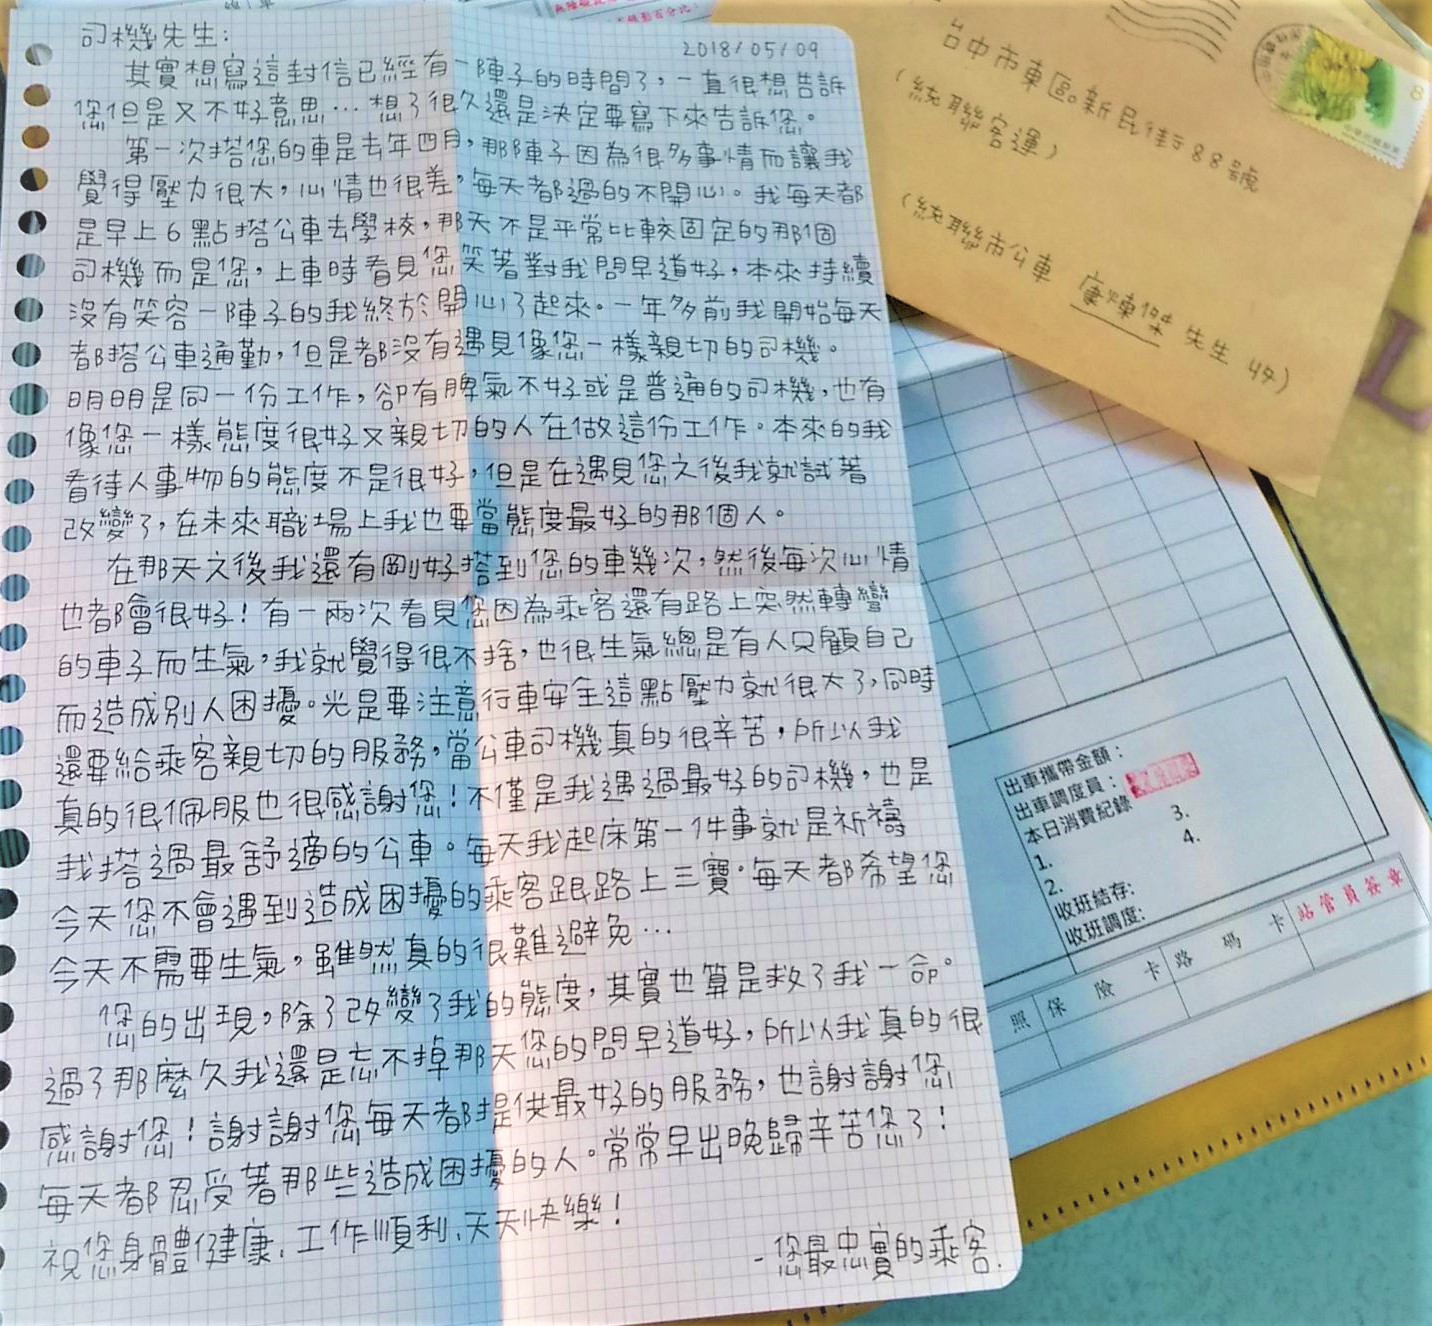 司機先生：
2018/05/09
其實想寫這封信已經有一陣子的時間了，一直很想告訴
您但是又不好意思…想了很久還是決定要寫下來告訴您。
第一次搭您的車是去年四月，那陣子因為很多事情而讓我
覺得壓力很大，心情也很差，每天都過的不開心。我每天都
是早上6點搭公車去學校，那天不是平常比較固定的那個
司機而是您，上車時看見您笑著對我問早道好，本來持續
沒有笑容一陣子的我終於開心了起來。一年多前我開始每天
都搭公車通勤，但是都沒有遇見像您一樣親切的司機。
明明是同一份工作，卻有脾氣不好或是普通的司機，也有
像您一樣態度很好又親切的人在做這份工作。本來的我
看待人事物的態度不是很好，但是在遇見您之後我就試著
改變了，在未來職場上我也要當態度最好的那個人。
在那天之後我還有剛好搭到您的車幾次，然後每次心情
也都會很好！有一兩次看見您因為乘客還有路上突然轉彎
的車子而生氣，我就覺得很不捨，也很生氣總是有人只顧自己
而造成別人困擾。光是要注意行車安全這點壓力就很大了，同時
還要給乘客親切的服務，當公車司機真的很辛苦，所以我
真的很佩服也很感謝您！不僅是我遇過最好的司機，也是
我搭過最舒適的公車。每天我起床第一件事就是祈禱
今天您不會遇到造成困擾的乘客跟路上三寶。每天都希望您
今天不需要生氣，雖然真的很難避免…
您的出現，除了改變了我的態度，其實也算是救了我一命。
過了那麼久我還是忘不掉那天您的問早道好，所以我真的很
感謝您！謝謝您每天都提供最好的服務，也謝謝您
每天都忍受著那些造成困擾的人。常常早出晚歸辛苦您了！
祝您身體健康、工作順利、天天快樂！
-您最忠實的乘客.
台中市東區新民街88號
（統聯客運）
（統聯市公車 康煉傑 先生 收）
8
出車攜帶金額：
出車調度員：
本日消費紀錄
1.
3.
2.
4.
收班結存：
收班調度：
照
保險卡
路碼卡
站管員簽章